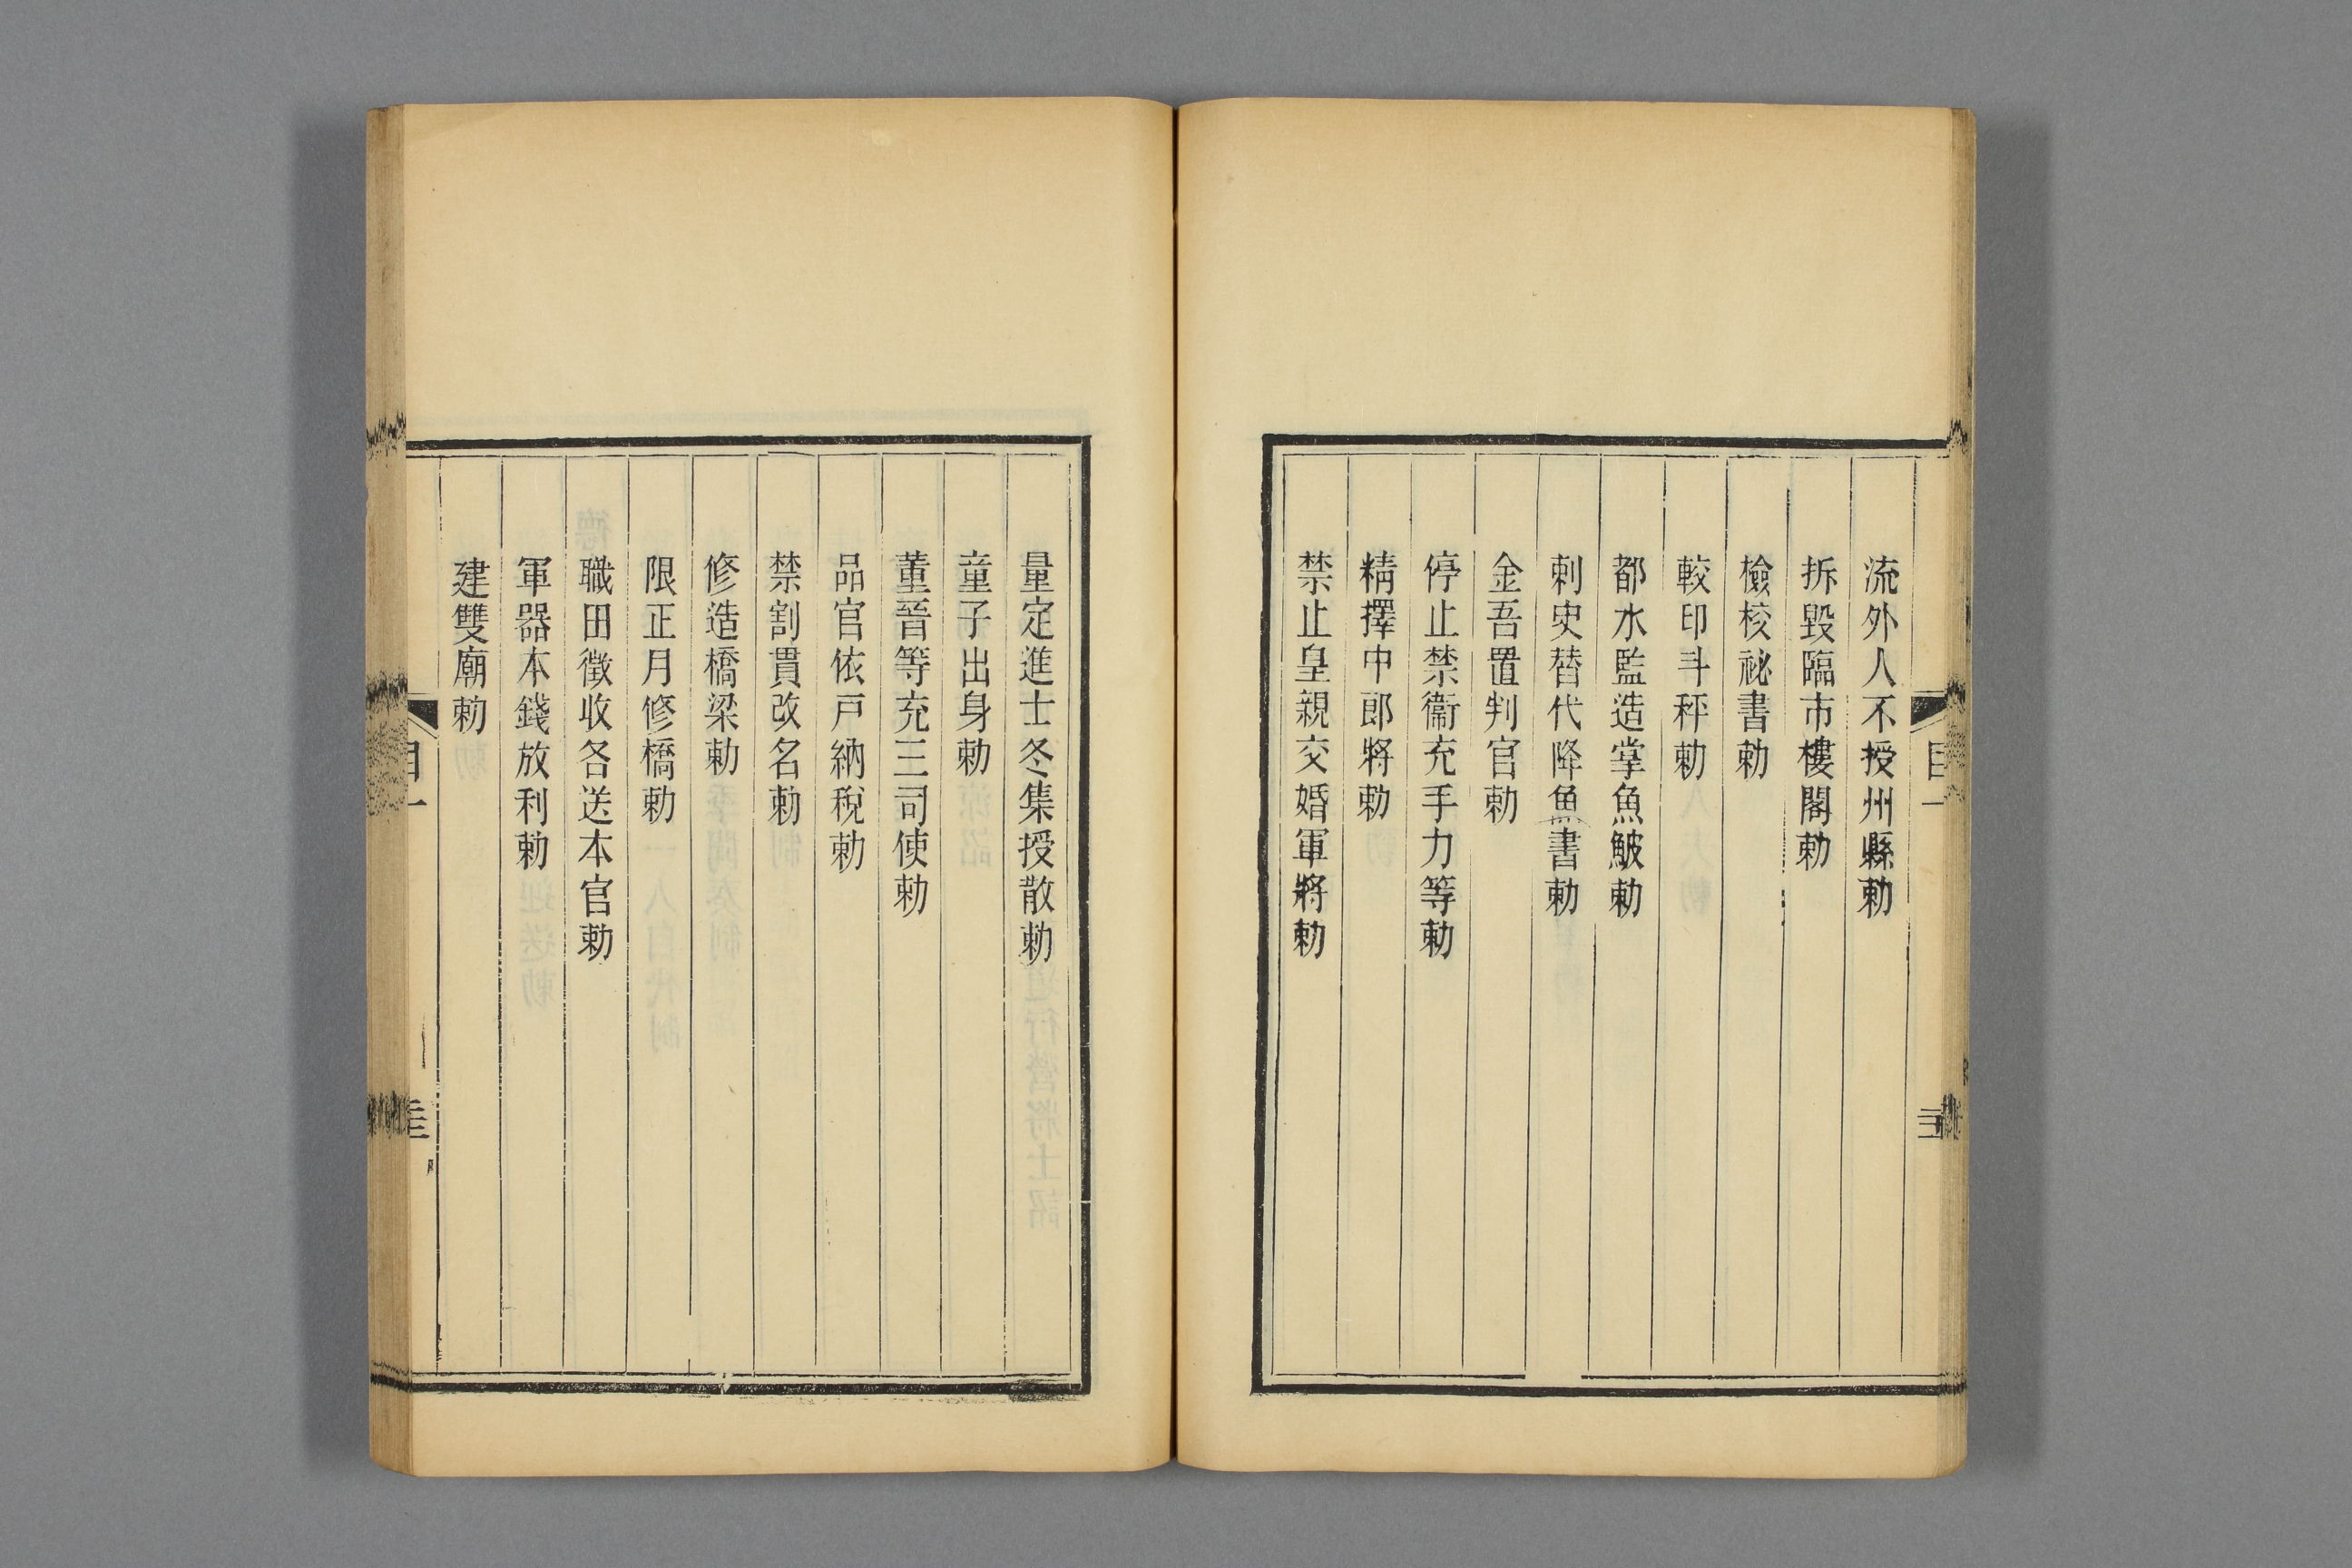 流外人不授州縣勅
拆毀臨市樓閣勅
檢校祕書勅
較印斗秤勅
都水監造掌魚鮍勅
刺史替代降魚書勅
金吾置判官勅
停止禁衞充手力等勅
精擇中郎將勅
禁止皇親交婚軍將勅
量定進士冬集授散勅
童子出身勅
董晉等充三司使勅
品官依戸納稅勅
禁割貫改名勅
修造橋梁勅
限正月修橋勅
職田徵收各送本官勅
軍器本錢放利勅
建雙廟勅